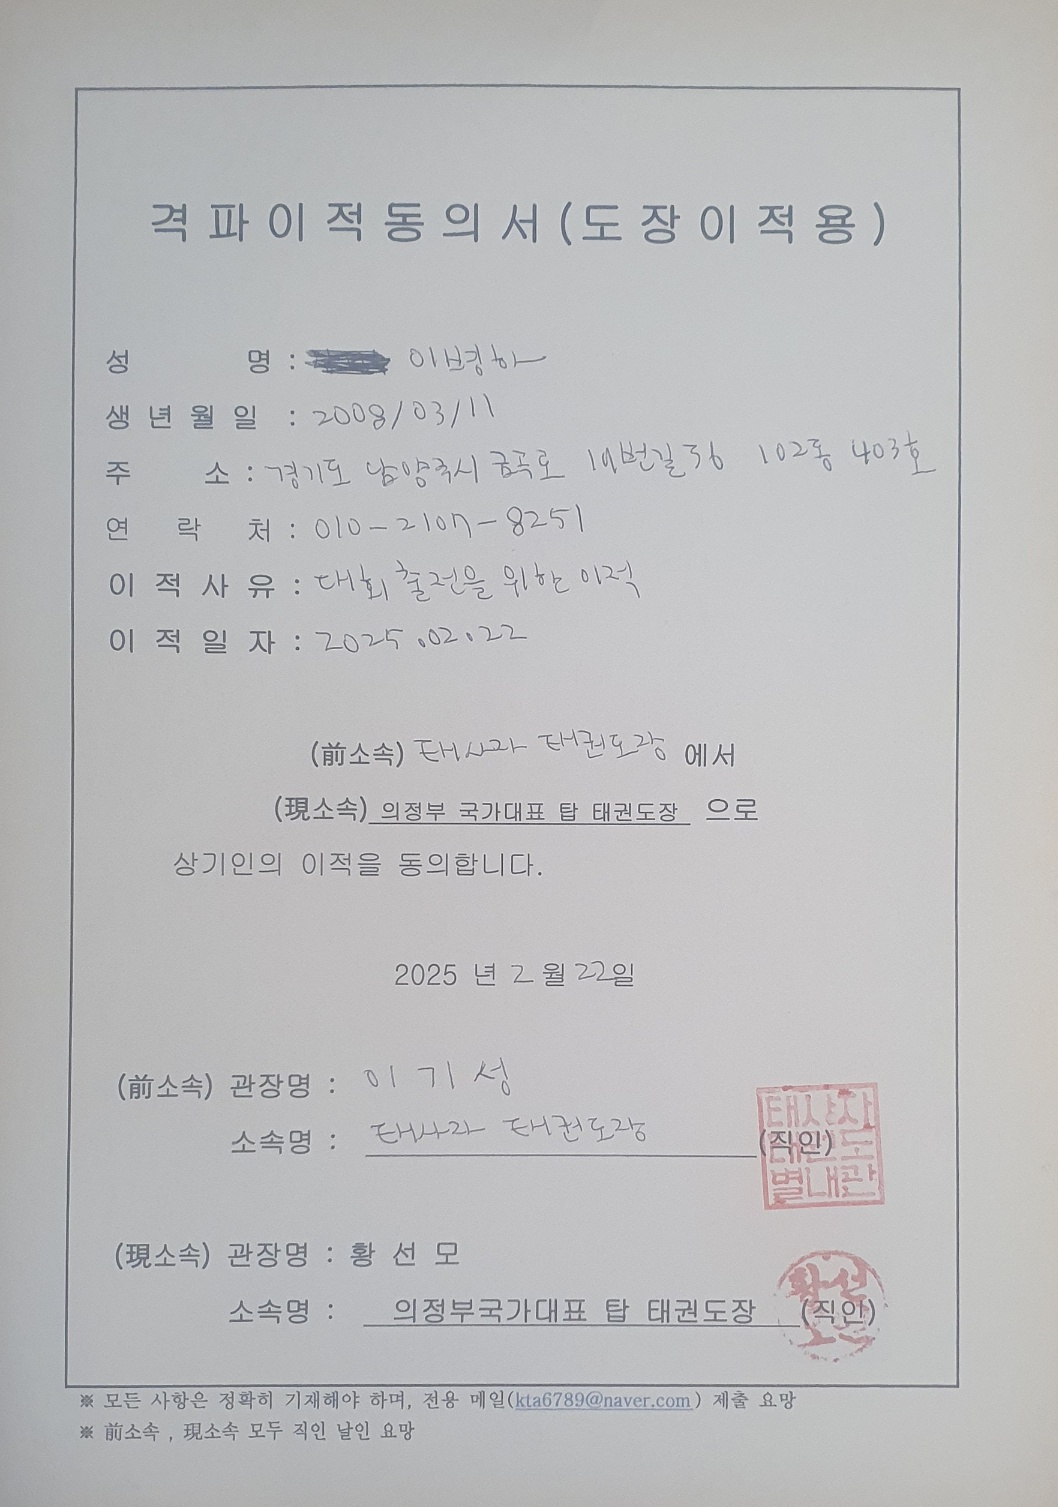 격파이적동의서(도장이적용)
성 명 :
생년월일 : 2008/03/11
주 소 : 경기도 남양주시 금곡로 102동 403호
연 락 처 : 010-2107-8251
이적사유 : 대회 출전을 위한 이적
이적일자 : 2025.02.22
(前소속) 태사자 태권도장 에서
(現소속) 의정부 국가대표 탑 태권도장 으로
상기인의 이적을 동의합니다.
2025 년 2 월 22일
(前소속) 관장명 : 이기성
소속명 : 태사자 태권도장 (직인)
태사자
태권도
별내관
(現소속) 관장명 : 황 선 모
소속명 : 의정부국가대표 탑 태권도장 (직인)
황선
※ 모든 사항은 정확히 기재해야 하며, 전용 메일(kta6789@naver.com) 제출 요망
※ 前소속 , 現소속 모두 직인 날인 요망